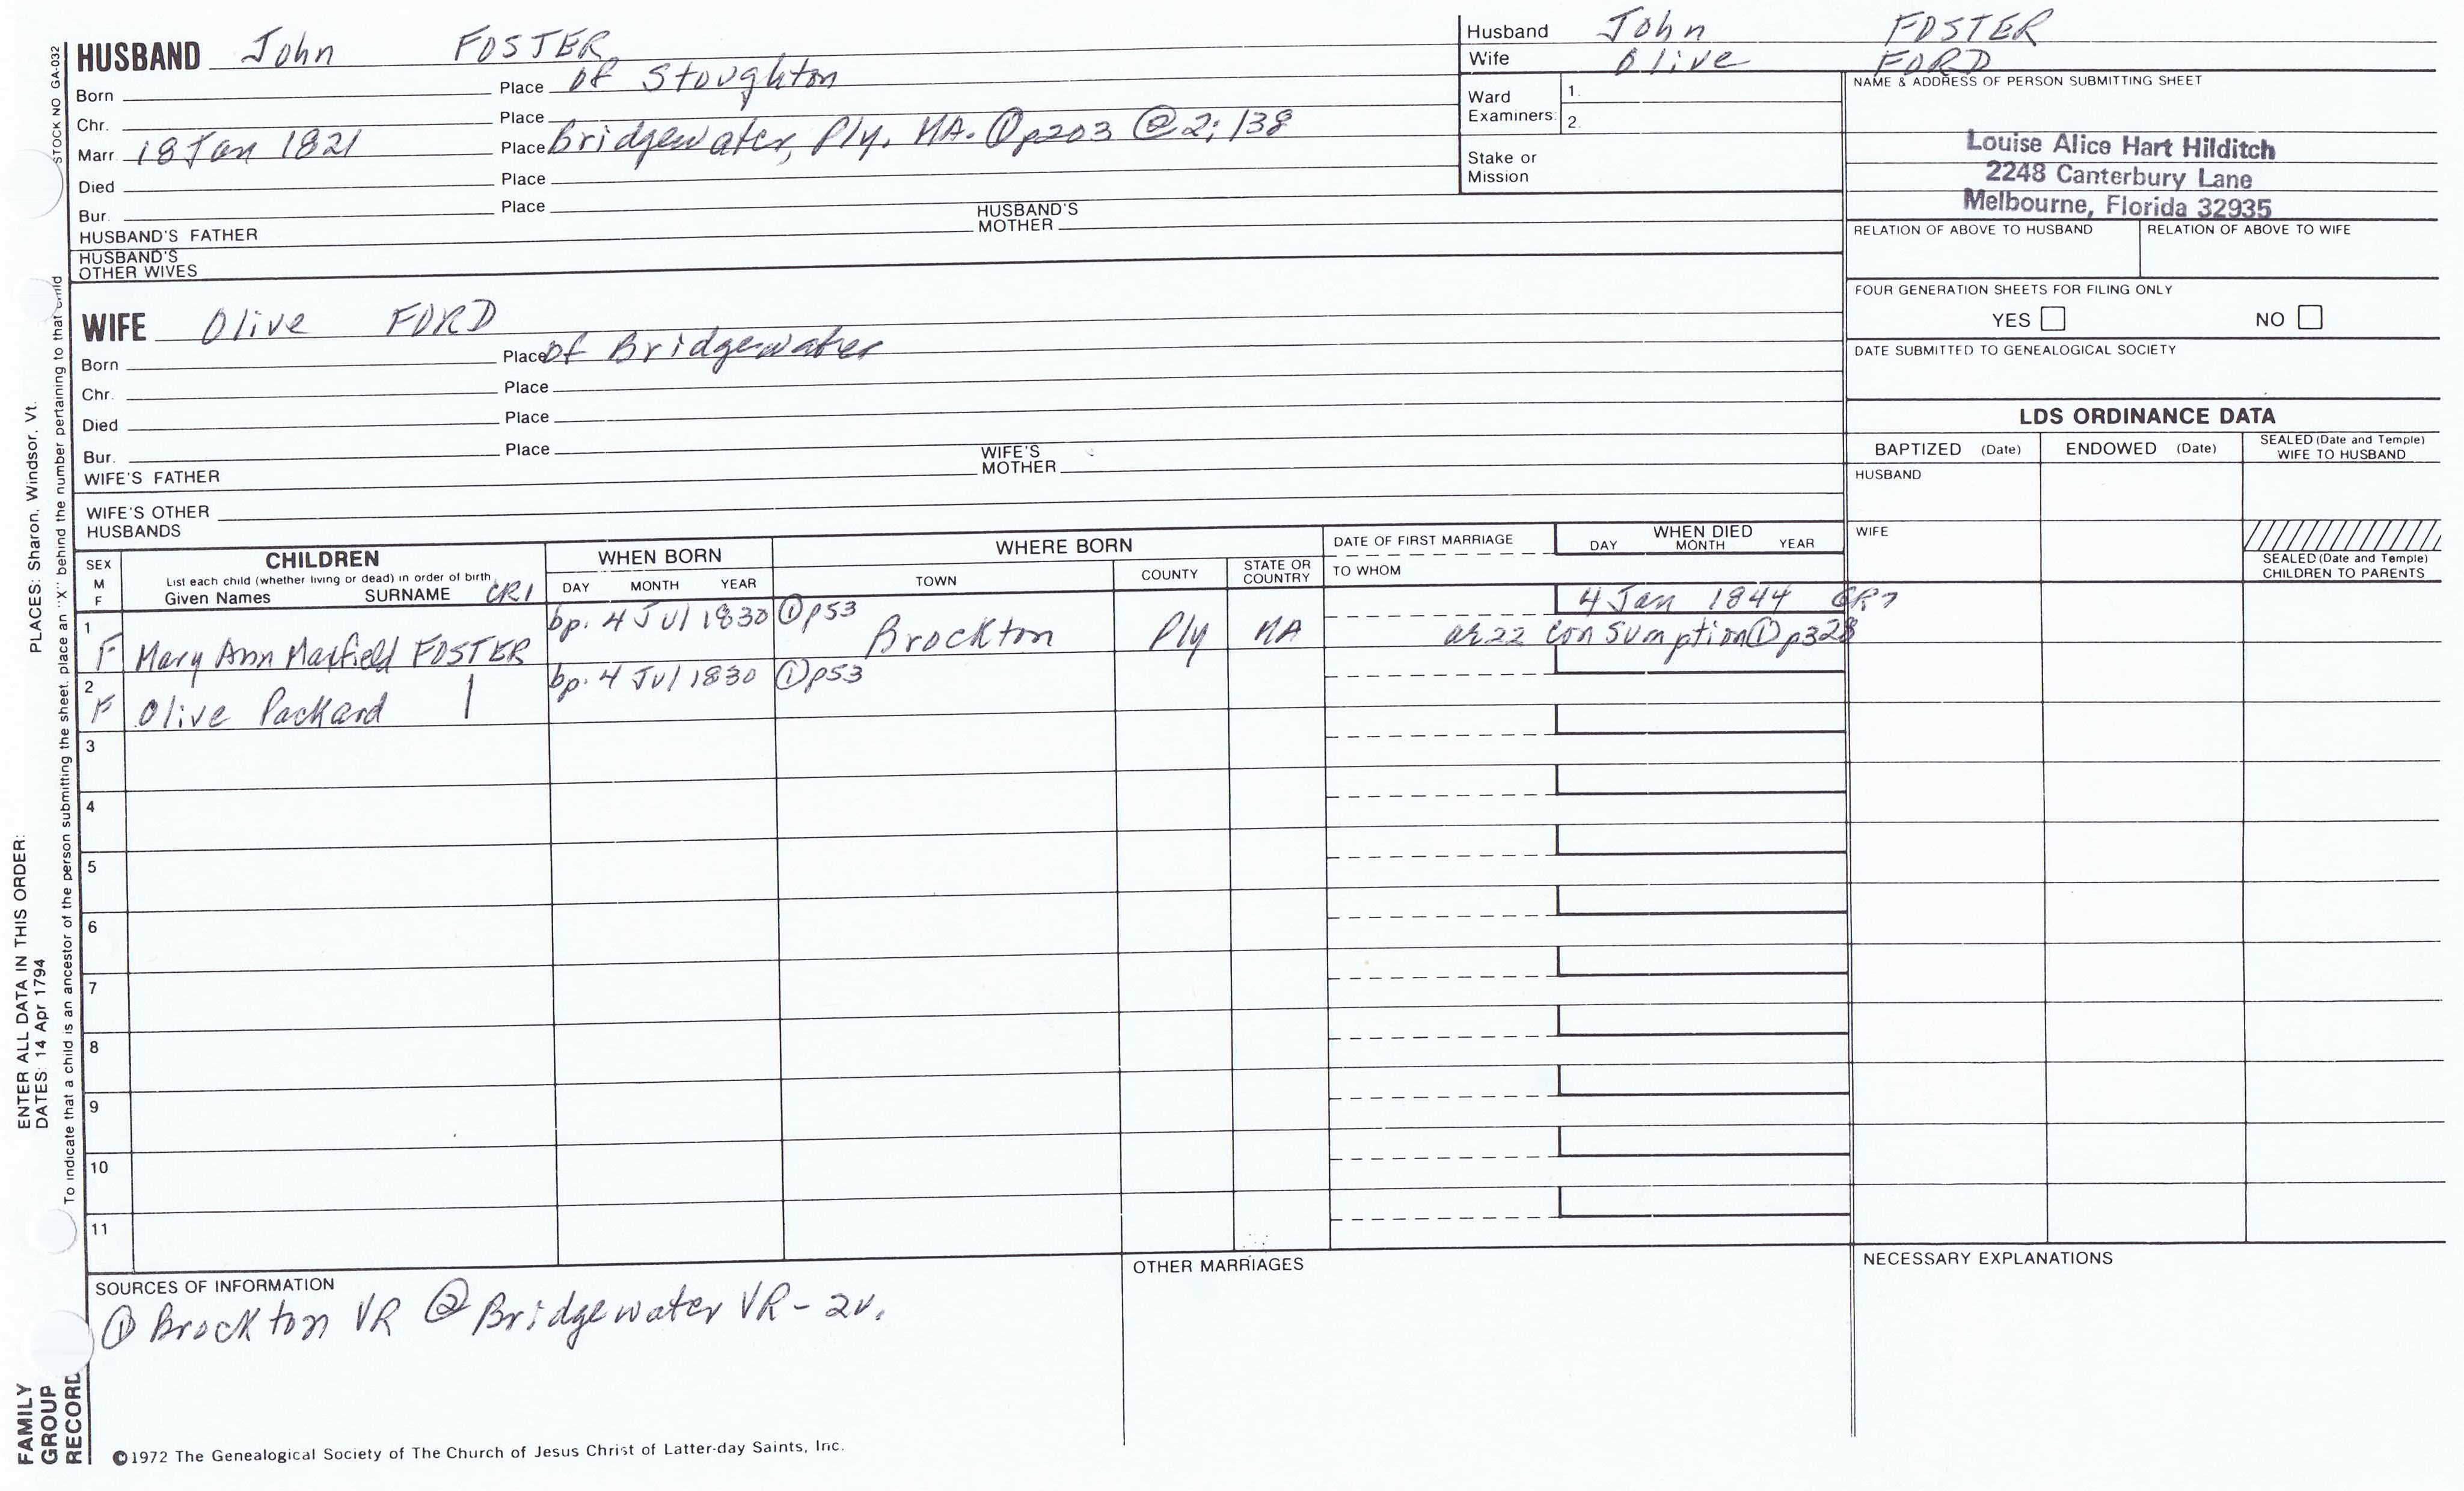 HUSBAND John FOSTER
Born Place of Stoughton
Chr. Place
Marr. 18 Jan 1821 Place Bridgewater, Ply. MA. ① p203 ② 2:138
Died Place
Bur. Place
HUSBAND'S FATHER HUSBAND'S MOTHER
HUSBAND'S OTHER WIVES
Husband John FOSTER
Wife Olive FORD
Ward Examiners: 1.
2.
Stake or Mission
NAME & ADDRESS OF PERSON SUBMITTING SHEET
Louise Alice Hart Hilditch
2248 Canterbury Lane
Melbourne, Florida 32935
RELATION OF ABOVE TO HUSBAND RELATION OF ABOVE TO WIFE
FOUR GENERATION SHEETS FOR FILING ONLY
YES NO
DATE SUBMITTED TO GENEALOGICAL SOCIETY
WIFE Olive FORD
Born Place of Bridgewater
Chr. Place
Died Place
Bur. Place
WIFE'S FATHER WIFE'S MOTHER
WIFE'S OTHER HUSBANDS
LDS ORDINANCE DATA
BAPTIZED (Date) ENDOWED (Date) SEALED (Date and Temple) WIFE TO HUSBAND
HUSBAND
WIFE
SEALED (Date and Temple) CHILDREN TO PARENTS
SEX M F
CHILDREN
List each child (whether living or dead) in order of birth
Given Names SURNAME CR1
WHEN BORN
DAY MONTH YEAR
WHERE BORN
TOWN COUNTY STATE OR COUNTRY
DATE OF FIRST MARRIAGE
TO WHOM
WHEN DIED
DAY MONTH YEAR
1 F Mary Ann Maxfield FOSTER bp. 4 Jul 1830 ① p53 Brockton Ply MA 4 Jan 1844 GR7
ae 22 consumption ① p328
2 F Olive Packard | bp. 4 Jul 1830 ① p53
3
4
5
6
7
8
9
10
11
SOURCES OF INFORMATION
① Brockton VR ② Bridgewater VR - 2v.
OTHER MARRIAGES
NECESSARY EXPLANATIONS
©1972 The Genealogical Society of The Church of Jesus Christ of Latter-day Saints, Inc.
STOCK NO GA-032
To indicate that a child is an ancestor of the person submitting the sheet, place an "X" behind the number pertaining to that child
PLACES: Sharon, Windsor, Vt.
ENTER ALL DATA IN THIS ORDER:
DATES: 14 Apr 1794
FAMILY
GROUP
RECORD